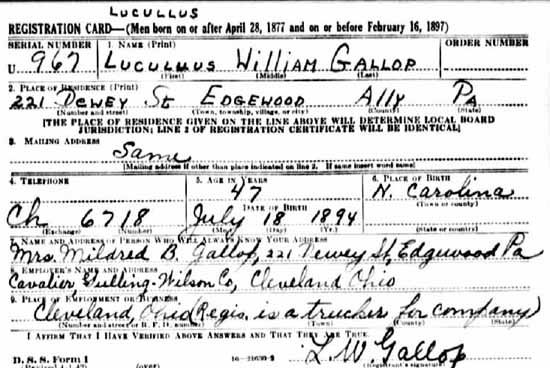 LUCULLUS
REGISTRATION CARD—(Men born on or after April 28, 1877 and on or before February 16, 1897)
SERIAL NUMBER 1. NAME (Print) ORDER NUMBER
U 967 LUCULLUS WILLIAM GALLOP
(First) (Middle) (Last)
2. PLACE OF RESIDENCE (Print)
221 DEWEY ST EDGEWOOD ALLY PA
(Number and street) (Town, township, village, or city) (County) (State)
[THE PLACE OF RESIDENCE GIVEN ON THE LINE ABOVE WILL DETERMINE LOCAL BOARD
JURISDICTION; LINE 2 OF REGISTRATION CERTIFICATE WILL BE IDENTICAL]
3. MAILING ADDRESS
Same
[Mailing address if other than place indicated on line 2. If same insert word same]
4. TELEPHONE 5. AGE IN YEARS 6. PLACE OF BIRTH
47 N. Carolina
DATE OF BIRTH (Town or county)
Ch 6718 July 18 1894
(Exchange) (Number) (Mo.) (Day) (Yr.) (State or country)
7. NAME AND ADDRESS OF PERSON WHO WILL ALWAYS KNOW YOUR ADDRESS
Mrs. Mildred B. Gallop, 221 Dewey St, Edgewood Pa
8. EMPLOYER'S NAME AND ADDRESS
Cavalier Gulling-Wilson Co, Cleveland Ohio
9. PLACE OF EMPLOYMENT OR BUSINESS
Cleveland, Ohio (Regis. is a trucker for company)
(Number and street or R. F. D. number) (Town) (County) (State)
I AFFIRM THAT I HAVE VERIFIED ABOVE ANSWERS AND THAT THEY ARE TRUE.
L. W. Gallop
D. S. S. Form 1 (over) 16—21630-2 (Registrant's signature)
(Revised 4-1-42)